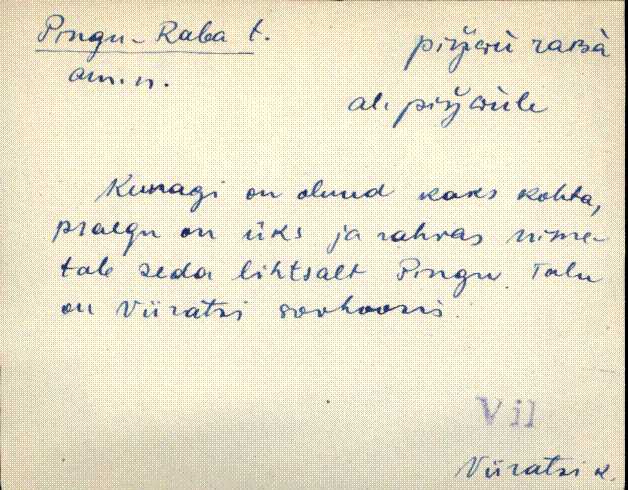 Pingu-Raba t.
am. n.
Kunagi on olnud kaks kohta,
praegu on üks ja rahvas nime-
tab seda lihtsalt Pingu. Talu
on Viiratsi sovhoosis.
Vil
Viiratsi k.